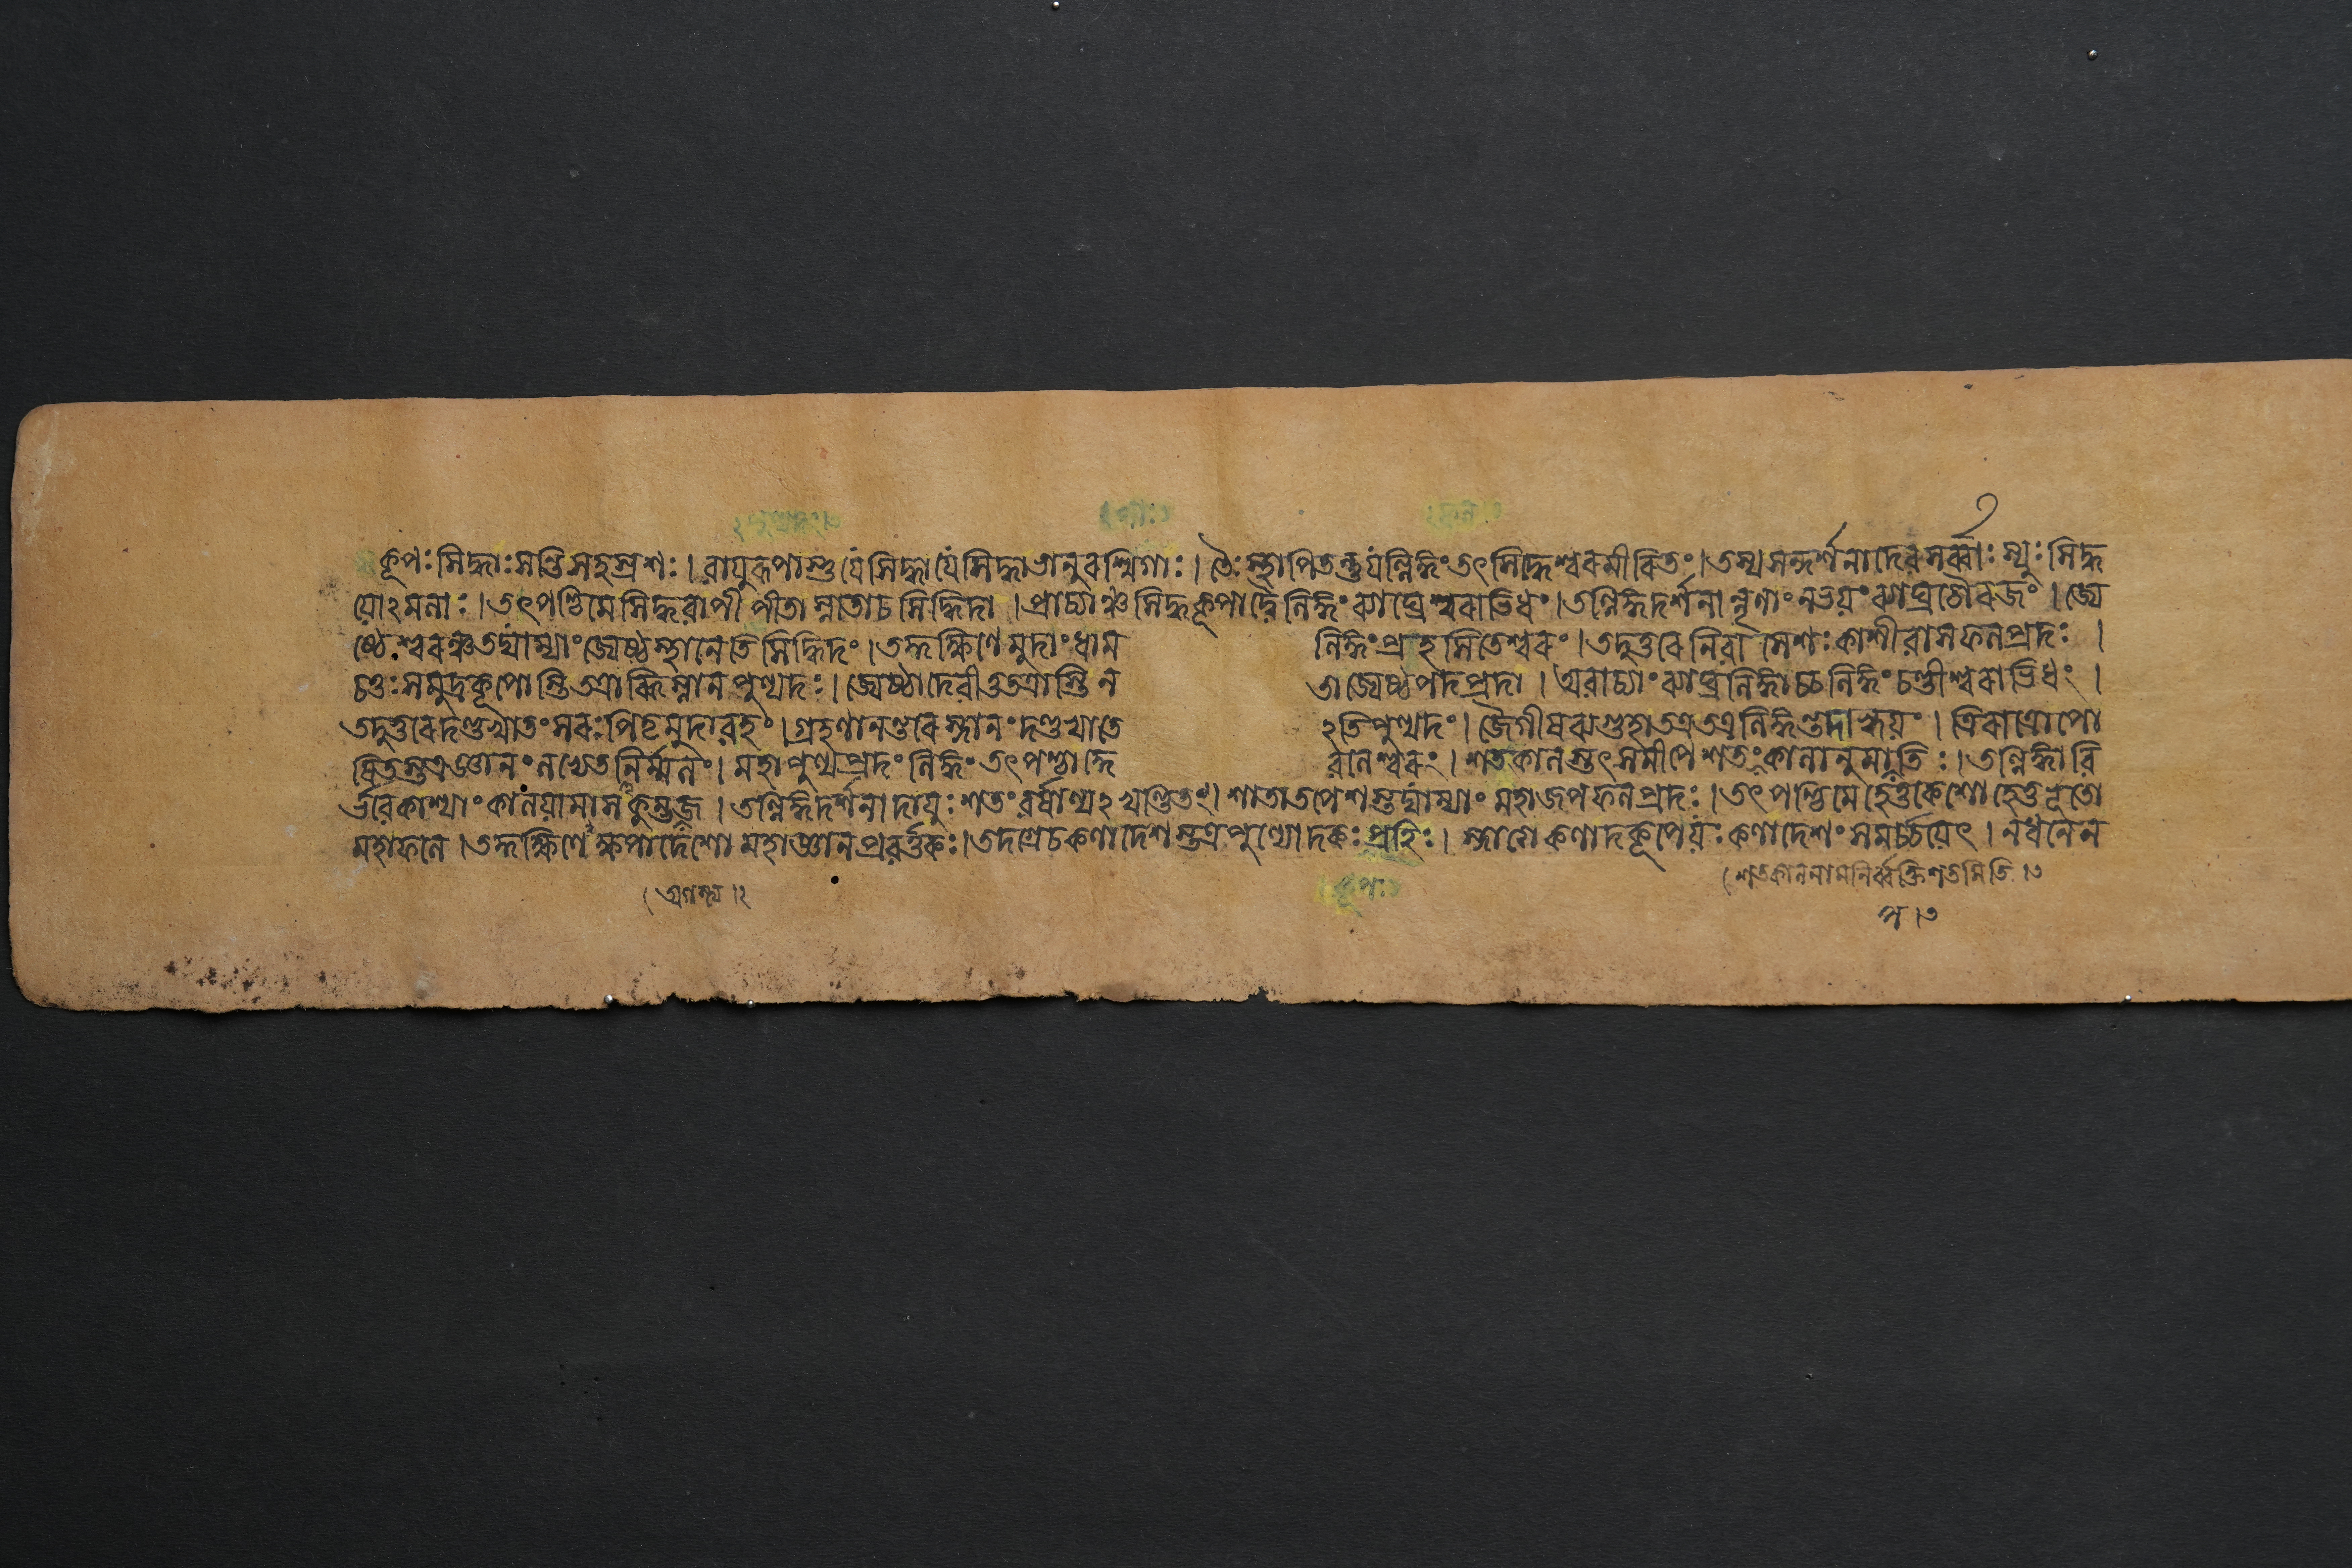 কূপঃ সিদ্ধাঃ সন্তি সহস্রশঃ । বায়ুরূপাস্তু যে সিদ্ধা যে সিদ্ধা ভানুরশ্মিগাঃ । তৈঃ স্থাপিতন্তু যল্লিঙ্গং তৎ সিদ্ধেশ্বরমীরিতং । তস্য সন্দর্শনাদেব সর্ব্বাঃ স্যুঃ সিদ্ধ
য়োঽমলাঃ । তৎপশ্চিমে সিদ্ধবাপী পীতা স্নাতা চ সিদ্ধিদা । প্রাচ্যাঞ্চ সিদ্ধকূপাদ্বৈ লিঙ্গং ব্যাঘ্রেশ্বরাভিধং । তল্লিঙ্গদর্শনান্নৃণাং ন ভয়ং ব্যাঘ্রচৌরজং । জ্যে
ষ্ঠেশ্বরঞ্চ তদ্যাম্যাং জ্যেষ্ঠস্থানেতিসিদ্ধিদং । তদ্দক্ষিণে মুদাং ধাম লিঙ্গং প্রহসিতেশ্বরং । তদুত্তরে নিবাসেশঃ কাশীবাসফলপ্রদঃ ।
চতুঃসমুদ্রকূপোস্তি তত্রাব্ধিস্নানপুণ্যদঃ । জ্যেষ্ঠাদেবী তু তত্রাস্তি ন তা জ্যেষ্ঠপদপ্রদা । অবাচ্যাং ব্যাঘ্রলিঙ্গাচ্চ লিঙ্গং চণ্ডীশ্বরাভিধং ।
তদুত্তরে দণ্ডখাতং সরঃ পিতৃমুদাবহং । গ্রহণানন্তরে স্নানং দণ্ডখাতে ঽতিপুণ্যদং । জৈগীষব্যগুহা তত্র তত্র লিঙ্গং তদাহ্বয়ং । ত্রিরাত্রোপো
ষিতস্তত্র জ্ঞানং লভেত নির্ম্মলং । মহাপুণ্যপ্রদং লিঙ্গং তৎপশ্চাদ্দে বলেশ্বরং । শতকালস্তৎসমীপে শতং কালানুমাপতিঃ । তল্লিঙ্গাবি
র্ভবে কাশ্যাং কালয়ামাস কুম্ভজ । তল্লিঙ্গদর্শনাদায়ুঃ শতং বর্ষাণ্যঽখণ্ডিতং । শাতাতপেশস্তদ্যাম্যাং মহাজপফলপ্রদঃ । তৎপশ্চিমে হেতুকেশো হেতুভূতো
মহাফলে । তদ্দক্ষিণেঽক্ষপাদেশো মহাজ্ঞানপ্রবর্ত্তকঃ । তদগ্রে চ কণাদেশস্তত্র পুণ্যোদকঃ প্রহিঃ । স্নাত্বা কণাদকূপে য়ঃ কণাদেশং সমর্চ্চয়েৎ । ন ধনেন
। অগস্ত্য ।২
। শতকালনামনির্ব্বক্তি শতমিতি ।৩